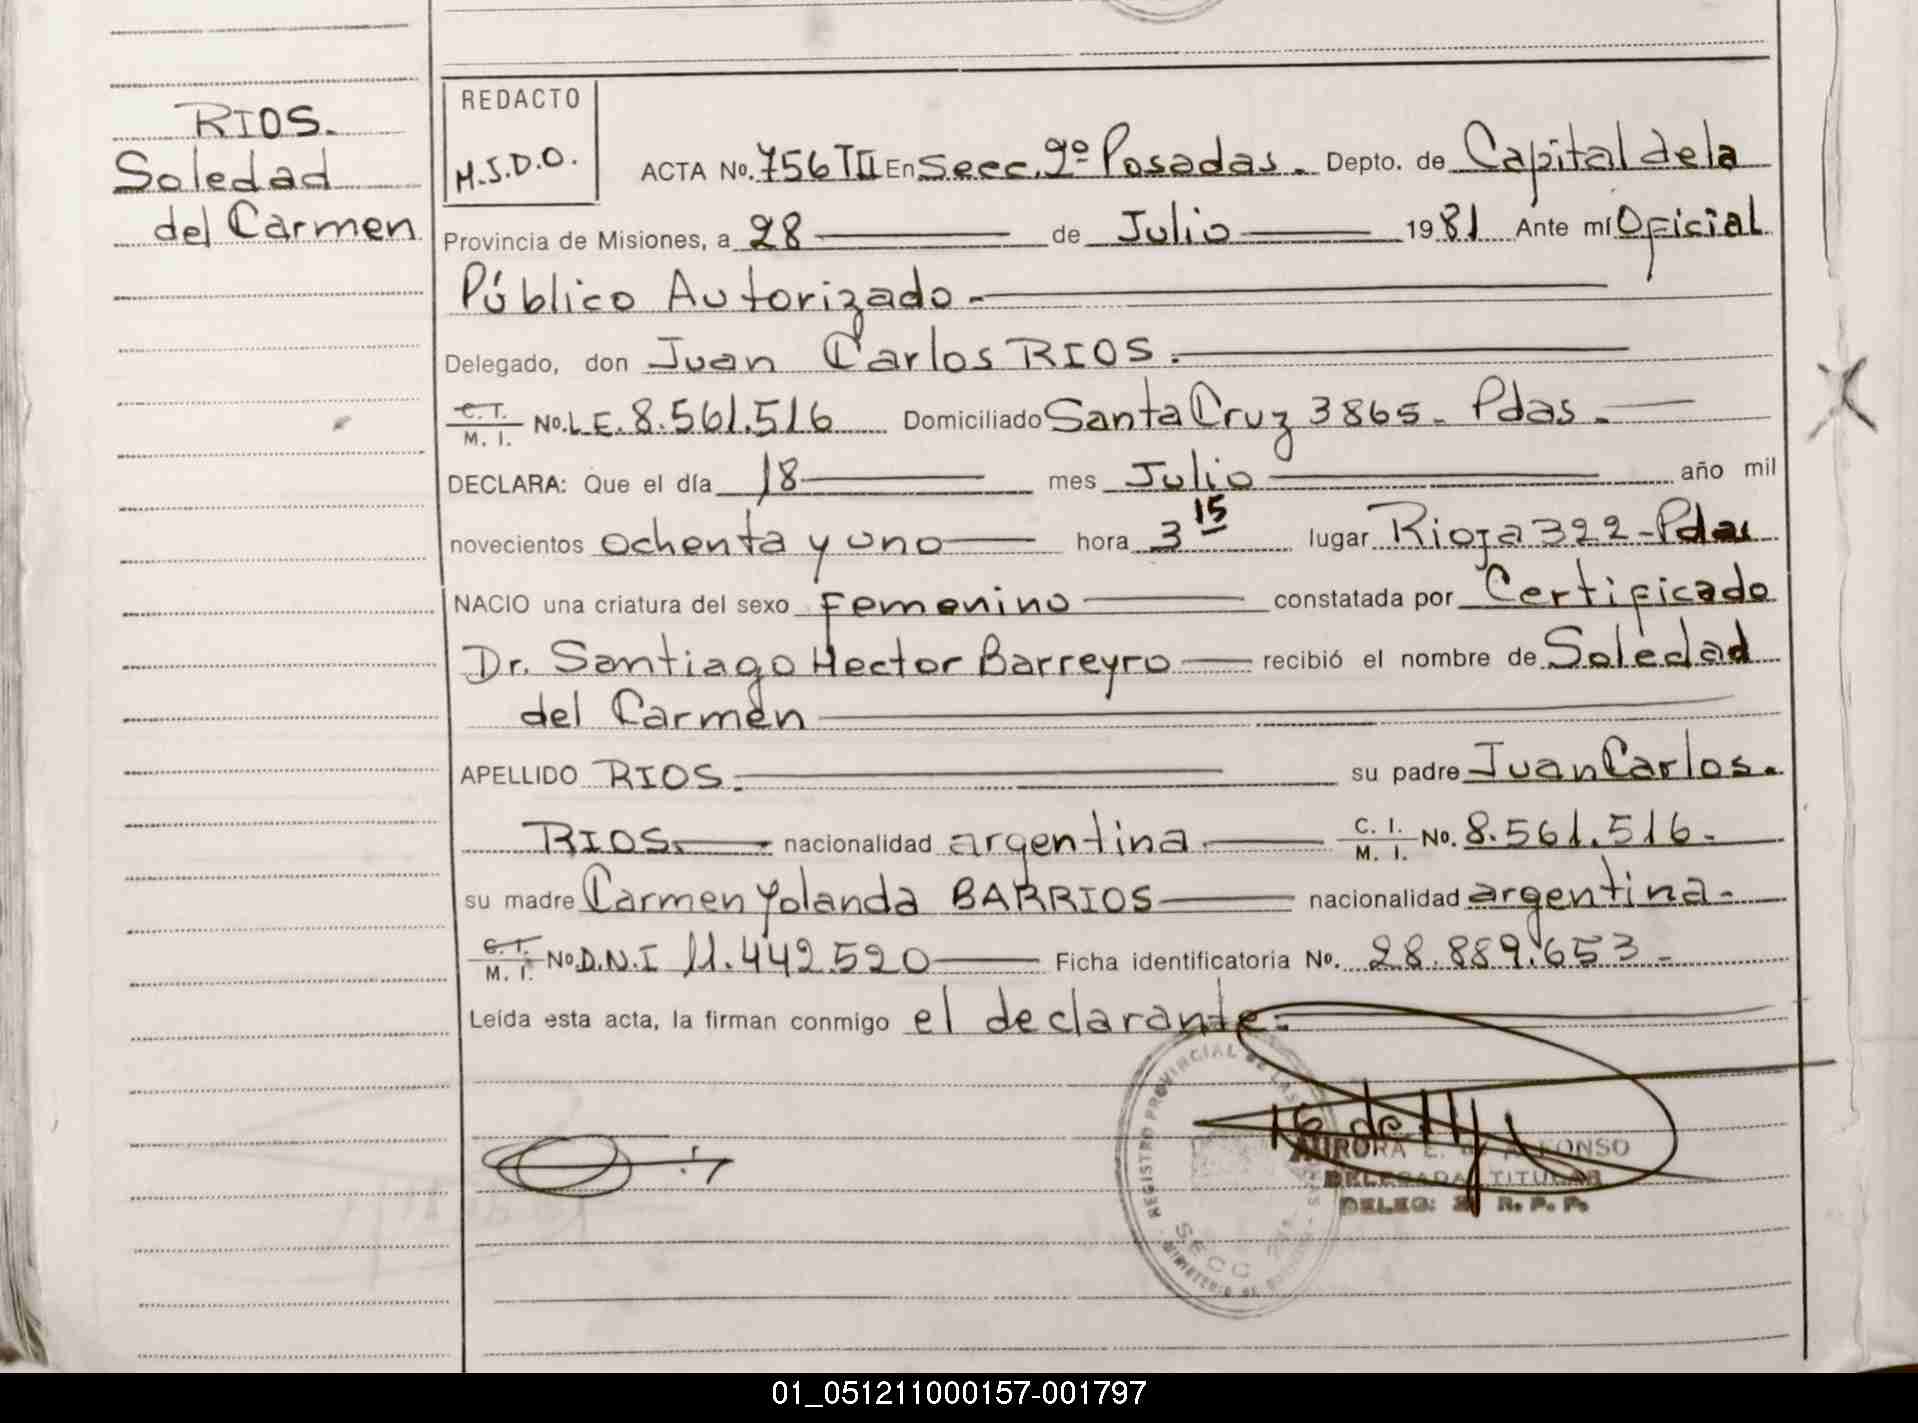 RIOS.
Soledad
del Carmen
REDACTO
M.S.D.O.
ACTA No. 756 TII En Secc. 2º Posadas. Depto. de Capital de la
Provincia de Misiones, a 28 de Julio 1981 Ante mí Oficial
Público Autorizado.
Delegado, don Juan Carlos RIOS.
C. I. / M. I. No. L.E. 8.561.516 Domiciliado Santa Cruz 3865 - Pdas.
DECLARA: Que el día 18 mes Julio año mil
novecientos ochenta y uno hora 3 15 lugar Rioja 322 - Pdas
NACIO una criatura del sexo Femenino constatada por Certificado
Dr. Santiago Hector Barreyro recibió el nombre de Soledad
del Carmen
APELLIDO RIOS. su padre Juan Carlos.
RIOS. nacionalidad argentina C. I. / M. I. No. 8.561.516.
su madre Carmen Yolanda BARRIOS nacionalidad argentina.
C. I. / M. I. No. D.N.I 11.442.520 Ficha identificatoria No. 28.889.653
Leída esta acta, la firman conmigo el declarante.
REGISTRO PROVINCIAL DE LAS
SECC
MINISTERIO DE
AURORA E. de ALFONSO
DELEGADA TITULAR
DELEG: 2ª R. P. P.
01_051211000157-001797